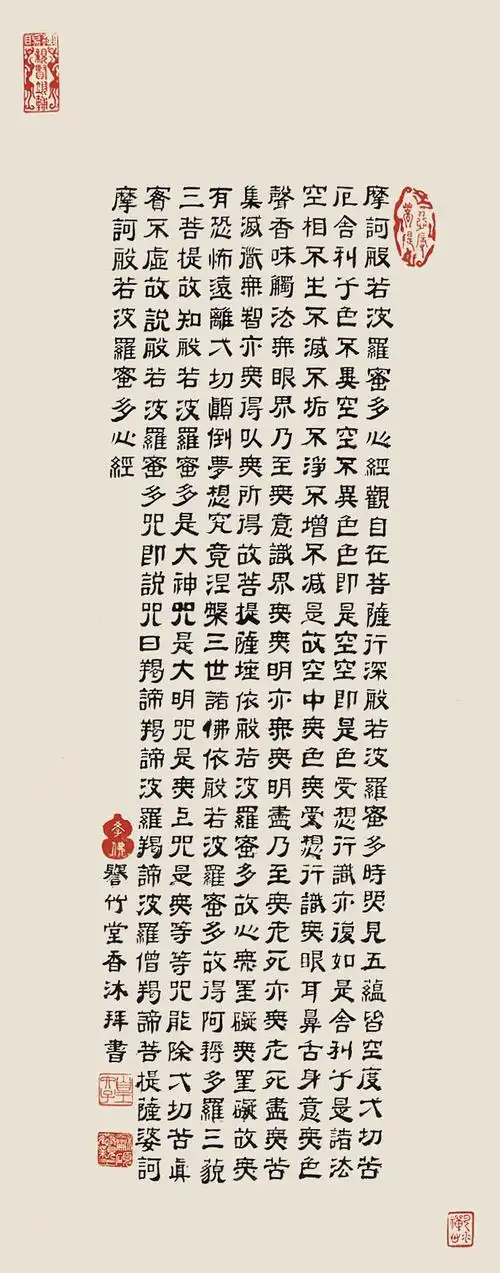 摩訶般若波羅蜜多心經觀自在菩薩行深般若波羅蜜多時照見五蘊皆空度弌切苦
厄舍利子色不異空空不異色色即是空空即是色受想行識亦復如是舍利子是諸法
空相不生不滅不垢不淨不增不減是故空中無色無受想行識無眼耳鼻舌身意無色
聲香味觸法無眼界乃至無意識界無無明亦無無明盡乃至無老死亦無老死盡無苦
集滅道無智亦無得以無所得故菩提薩埵依般若波羅蜜多故心無罣礙無罣礙故無
有恐怖遠離弌切顛倒夢想究竟涅槃三世諸佛依般若波羅蜜多故得阿耨多羅三藐
三菩提故知般若波羅蜜多是大神咒是大明咒是無上咒是無等等咒能除弌切苦真
實不虛故說般若波羅蜜多咒即說咒曰羯諦羯諦波羅羯諦波羅僧羯諦菩提薩婆訶
摩訶般若波羅蜜多心經
佛
竹堂香沐拜書